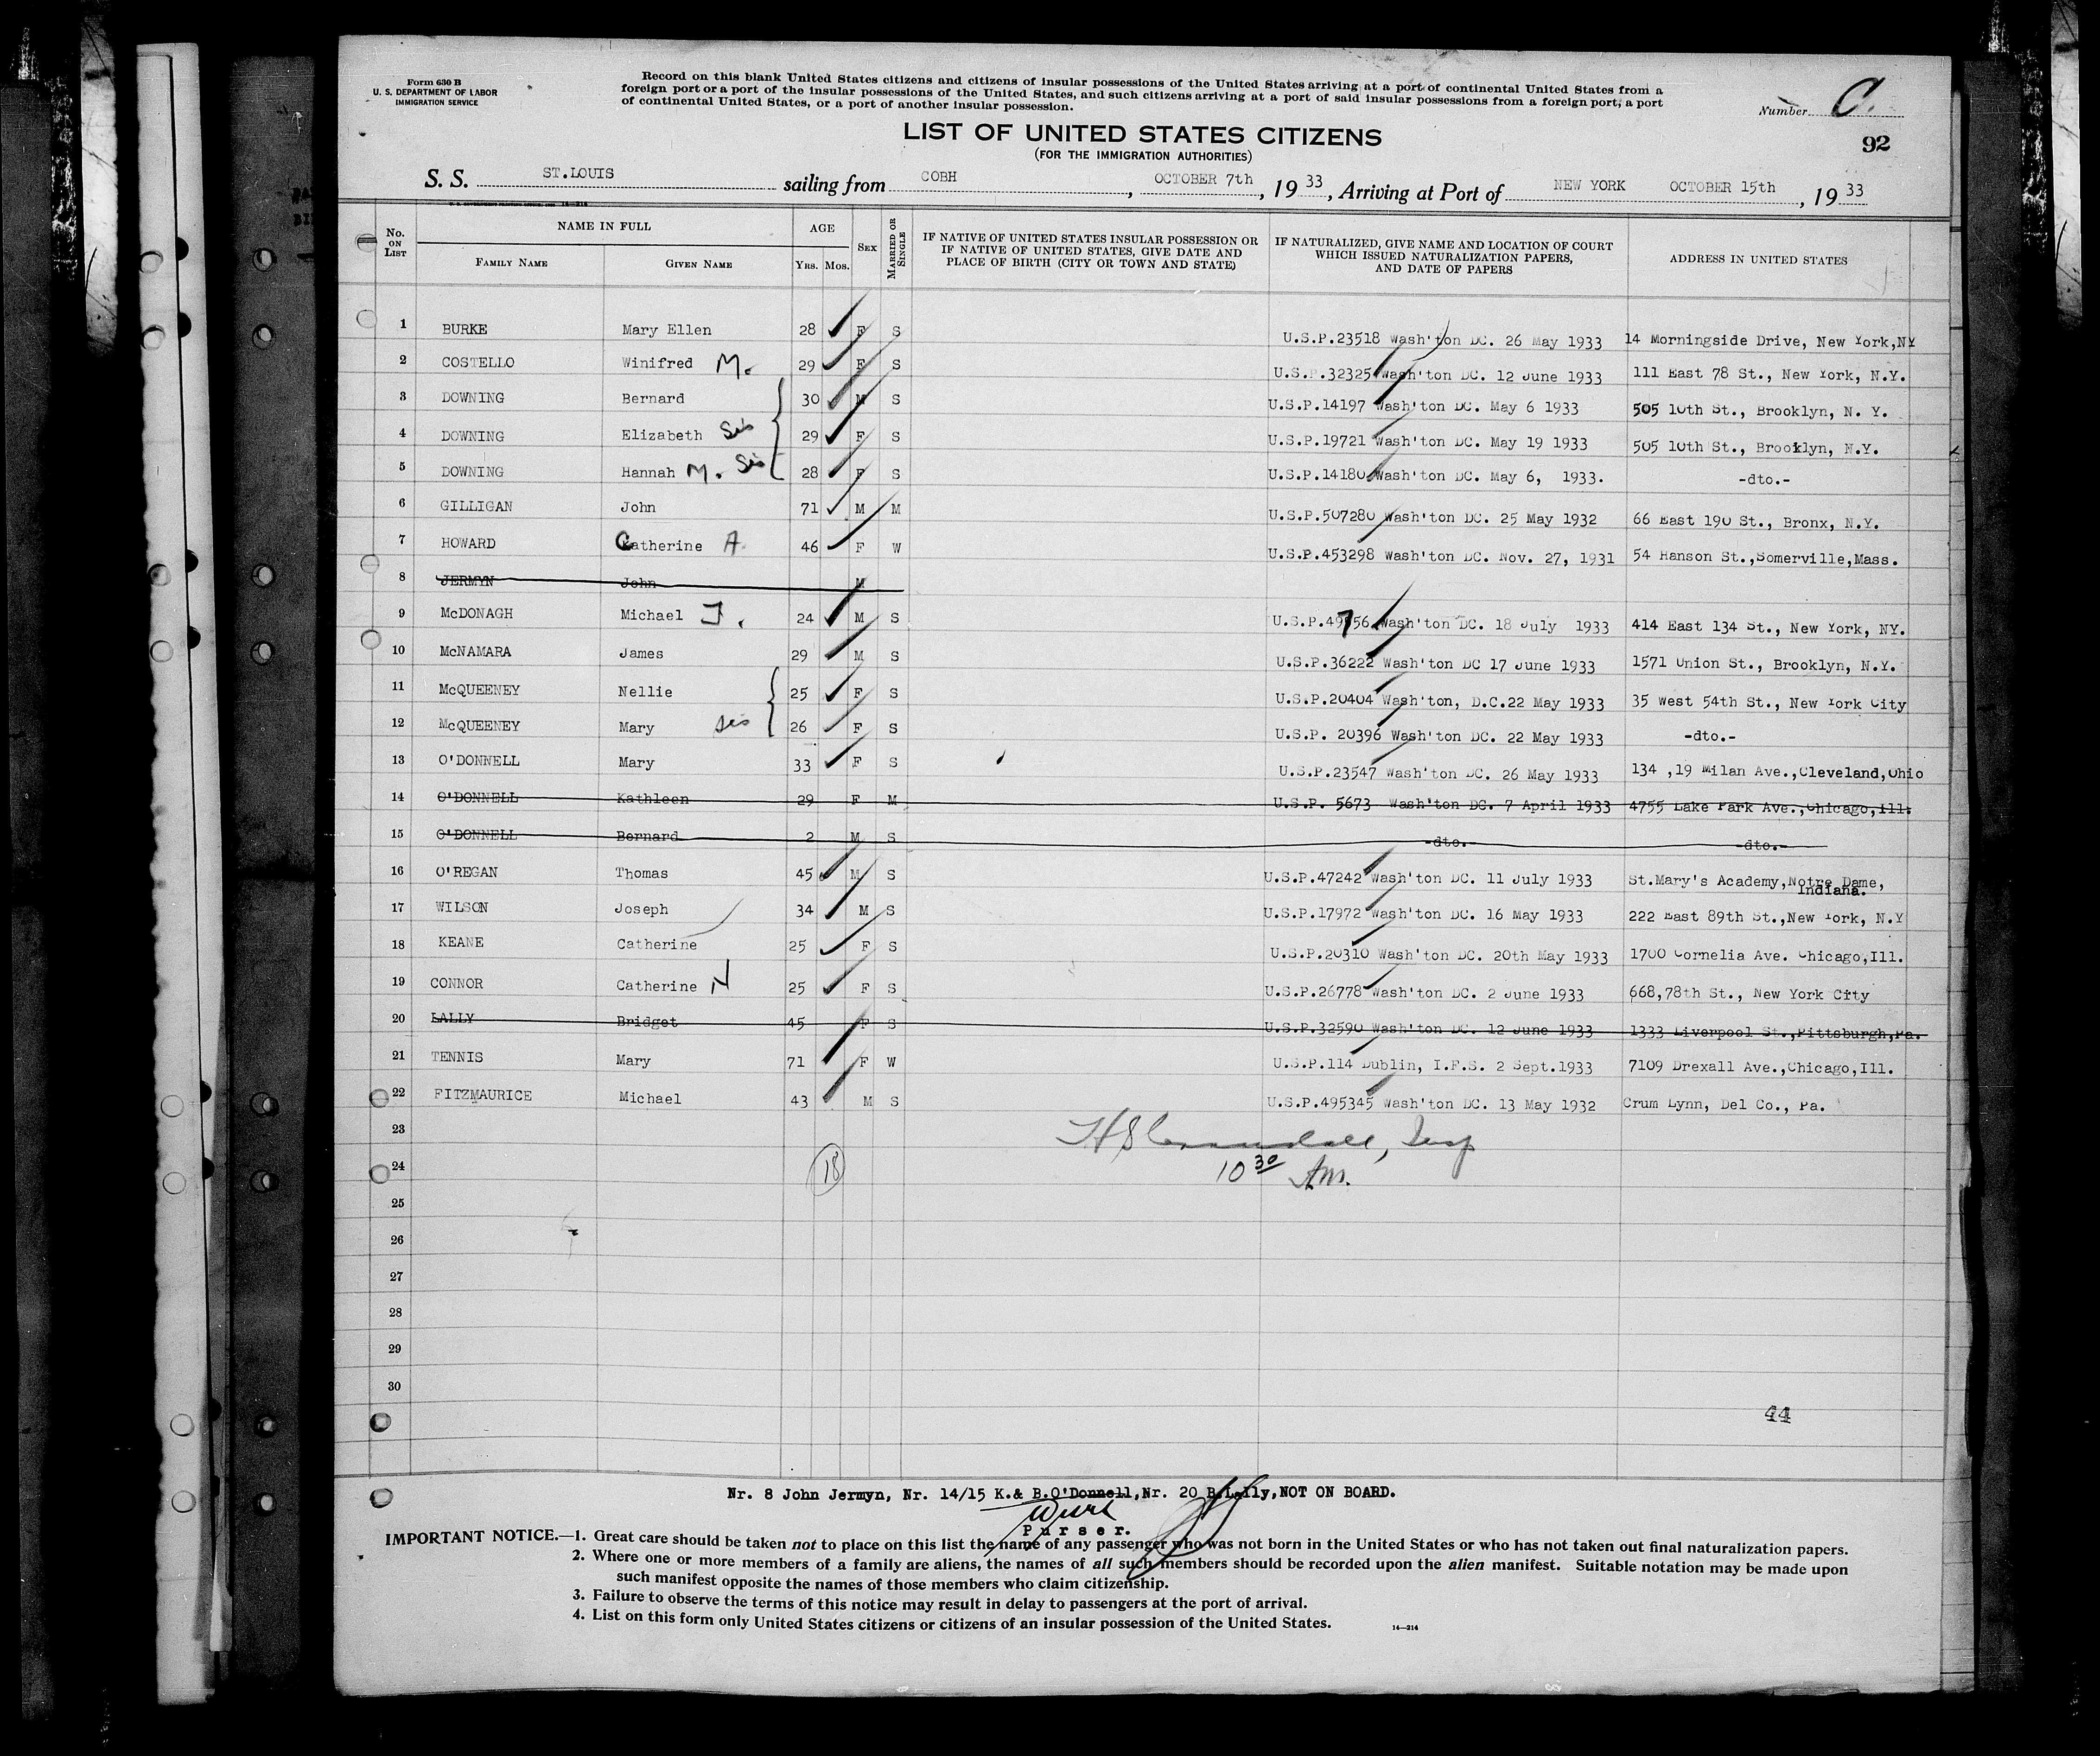 Form 630 B
U. S. DEPARTMENT OF LABOR
IMMIGRATION SERVICE
Record on this blank United States citizens and citizens of insular possessions of the United States arriving at a port of continental United States from a
foreign port or a port of the insular possessions of the United States, and such citizens arriving at a port of said insular possessions from a foreign port, a port
of continental United States, or a port of another insular possession.
Number C.
LIST OF UNITED STATES CITIZENS
92
(FOR THE IMMIGRATION AUTHORITIES)
S. S. ST.LOUIS sailing from COBH, OCTOBER 7th, 1933, Arriving at Port of NEW YORK OCTOBER 15th, 1933
No. ON LIST NAME IN FULL FAMILY NAME GIVEN NAME AGE YRS. MOS. SEX MARRIED OR SINGLE IF NATIVE OF UNITED STATES INSULAR POSSESSION OR IF NATIVE OF UNITED STATES, GIVE DATE AND PLACE OF BIRTH (CITY OR TOWN AND STATE) IF NATURALIZED, GIVE NAME AND LOCATION OF COURT WHICH ISSUED NATURALIZATION PAPERS, AND DATE OF PAPERS ADDRESS IN UNITED STATES
1 BURKE Mary Ellen 28 F S U.S.P.23518 Wash'ton DC. 26 May 1933 14 Morningside Drive, New York,NY
2 COSTELLO Winifred M. 29 F S U.S.P.32325 Wash'ton DC. 12 June 1933 111 East 78 St., New York, N.Y.
3 DOWNING Bernard 30 M S U.S.P.14197 Wash'ton DC. May 6 1933 505 10th St., Brooklyn, N. Y.
4 DOWNING Elizabeth Sis 29 F S U.S.P.19721 Wash'ton DC. May 19 1933 505 10th St., Brooklyn, N.Y.
5 DOWNING Hannah M. Sis 28 F S U.S.P.14180 Wash'ton DC. May 6, 1933. -dto.-
6 GILLIGAN John 71 M M U.S.P.507280 Wash'ton DC. 25 May 1932 66 East 190 St., Bronx, N.Y.
7 HOWARD Catherine A. 46 F W U.S.P.453298 Wash'ton DC. Nov. 27, 1931 54 Hanson St.,Somerville,Mass.
8 JERMYN John M
9 McDONAGH Michael J. 24 M S U.S.P.49756 Wash'ton DC. 18 July 1933 414 East 134 St., New York, NY.
10 McNAMARA James 29 M S U.S.P.36222 Wash'ton DC 17 June 1933 1571 Union St., Brooklyn, N.Y.
11 McQUEENEY Nellie 25 F S U.S.P.20404 Wash'ton, D.C.22 May 1933 35 West 54th St., New York City
12 McQUEENEY Mary sis 26 F S U.S.P. 20396 Wash'ton DC. 22 May 1933 -dto.-
13 O'DONNELL Mary 33 F S U.S.P.23547 Wash'ton DC. 26 May 1933 134 ,19 Milan Ave.,Cleveland,Ohio
14 O'DONNELL Kathleen 29 F M U.S.P. 5673 Wash'ton DC. 7 April 1933 4755 Lake Park Ave.,Chicago,Ill.
15 O'DONNELL Bernard 2 M S -dto.- -dto.-
16 O'REGAN Thomas 45 M S U.S.P.47242 Wash'ton DC. 11 July 1933 St.Mary's Academy,Notre Dame,
Indiana.
17 WILSON Joseph 34 M S U.S.P.17972 Wash'ton DC. 16 May 1933 222 East 89th St.,New York, N.Y
18 KEANE Catherine 25 F S U.S.P.20310 Wash'ton DC. 20th May 1933 1700 Cornelia Ave. Chicago,Ill.
19 CONNOR Catherine N 25 F S U.S.P.26778 Wash'ton DC. 2 June 1933 668,78th St., New York City
20 LALLY Bridget 45 F S U.S.P.32590 Wash'ton DC. 12 June 1933 1333 Liverpool St.,Pittsburgh,Pa.
21 TENNIS Mary 71 F W U.S.P.114 Dublin, I.F.S. 2 Sept.1933 7109 Drexall Ave.,Chicago,Ill.
22 FITZMAURICE Michael 43 M S U.S.P.495345 Wash'ton DC. 13 May 1932 Crum Lynn, Del Co., Pa.
23
24 18 10 30 Am.
25
26
27
28
29
30
44
Nr. 8 John Jermyn, Nr. 14/15 K.& B.O'Donnell,Nr. 20 B.Lally,NOT ON BOARD.
Purser.
IMPORTANT NOTICE.—1. Great care should be taken not to place on this list the name of any passenger who was not born in the United States or who has not taken out final naturalization papers.
2. Where one or more members of a family are aliens, the names of all such members should be recorded upon the alien manifest. Suitable notation may be made upon
such manifest opposite the names of those members who claim citizenship.
3. Failure to observe the terms of this notice may result in delay to passengers at the port of arrival.
4. List on this form only United States citizens or citizens of an insular possession of the United States.
14—214